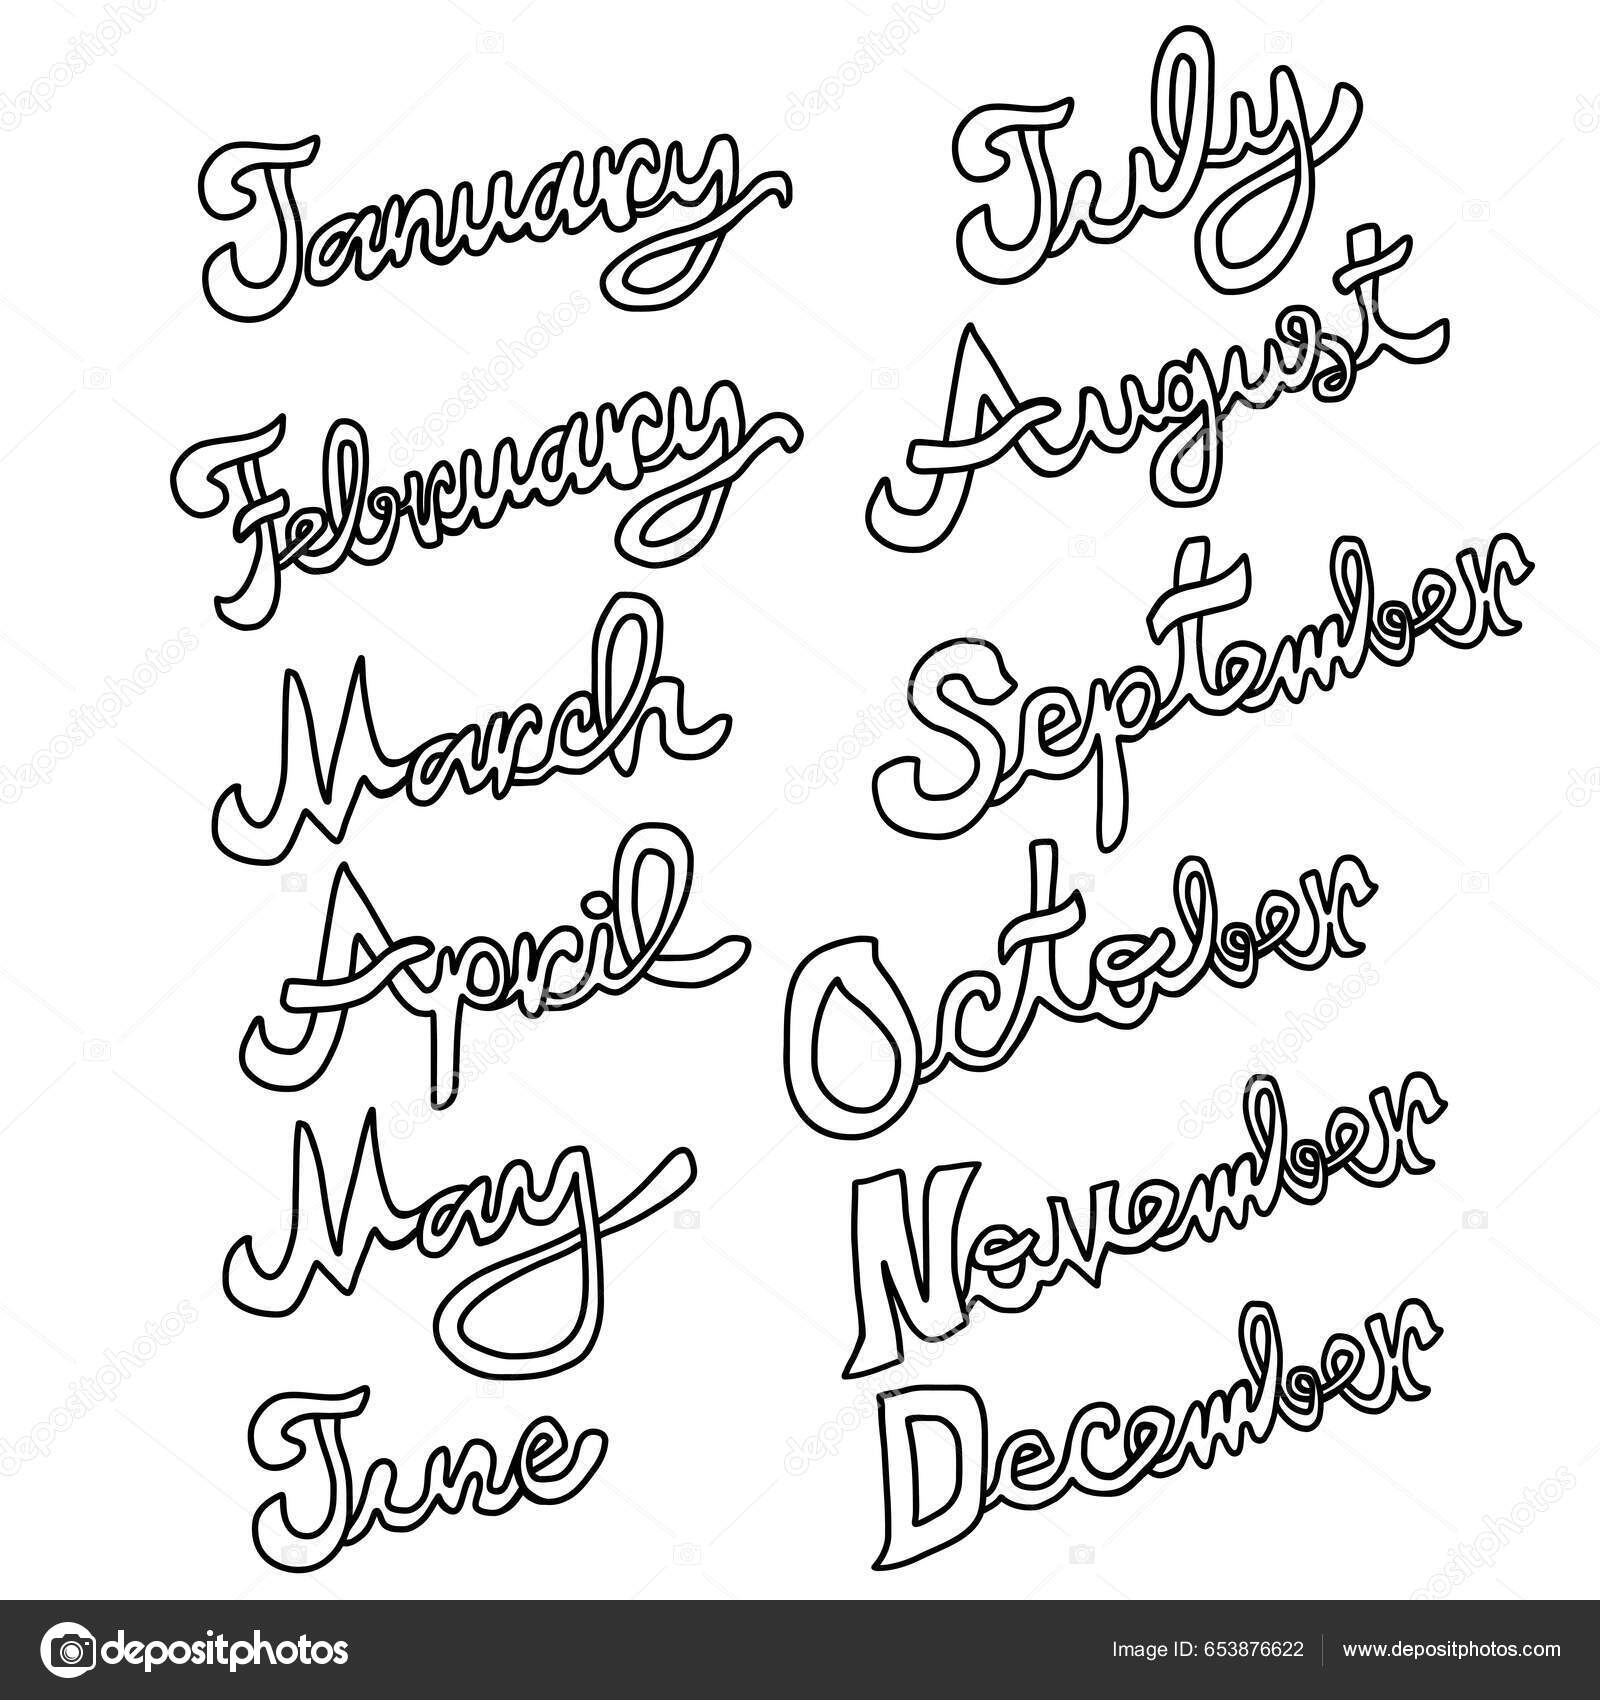 January
February
March
April
May
June
July
August
September
October
November
December
depositphotos
Image ID: 653876622
www.depositphotos.com